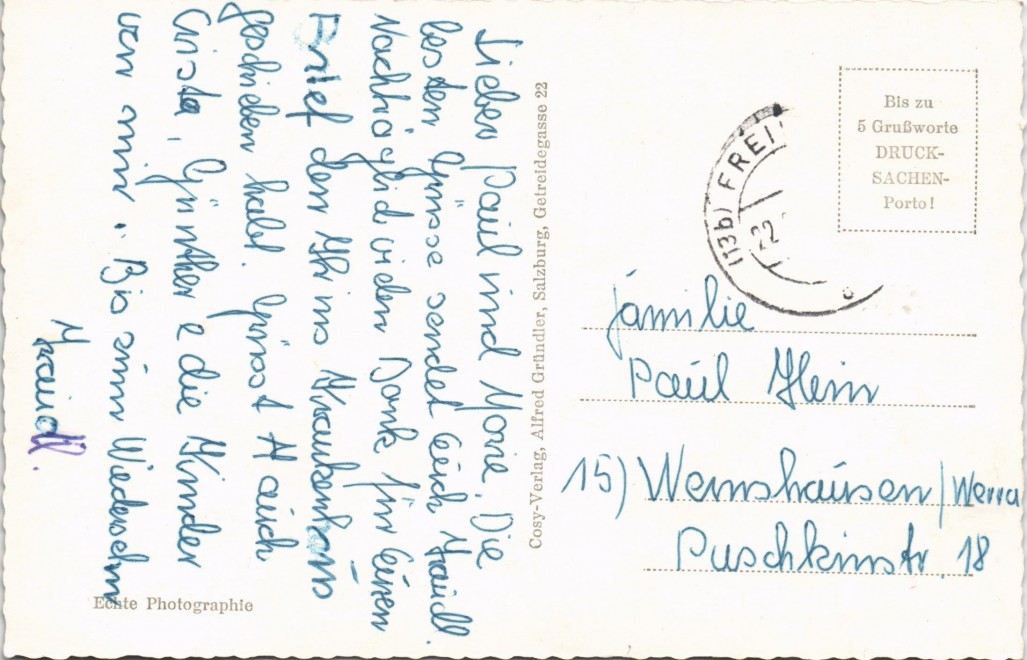 Lieber Paul und Marie. Die
besten Grüsse sendet Euch Maridl.
Nachträglich vielen Dank für Euren
Brief den Ihr ins Krankenhaus
geschieben habt. Grüsst auch
Crista, Günther e die Kinder
von mir. Bis zum Wiedersehn
Cosy-Verlag, Alfred Gründler, Salzburg, Getreidegasse 22
Echte Photographie
Bis zu
5 Grußworte
DRUCK-
SACHEN-
Porto!
(13b) FREI
22
Familie
Paul Hein
15) Wernshausen/Werra
Puschkinstr. 18